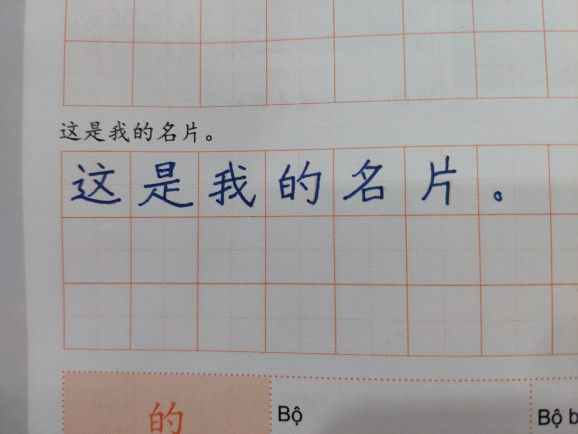 这是我的名片。
这是我的名片。
的
Bộ
Bộ b